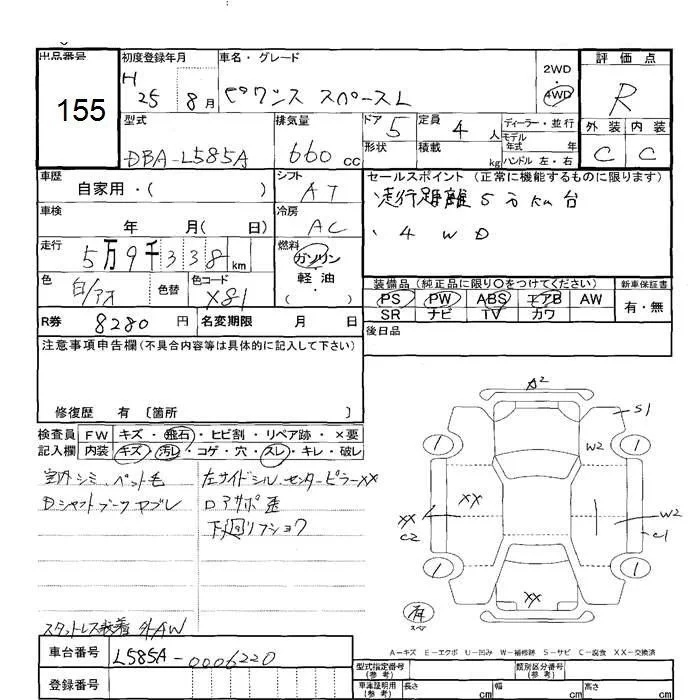 出品番号 155
初度登録年月 H 25 8月
車名・グレード ピクシス スペースL
2WD・4WD
評価点 R
型式 DBA-L585A
排気量 660 cc
ドア 5
形状
定員 4 人
積載 kg
ディーラー・並行
モデル年式 年
ハンドル 左・右
外装 C 内装 C
車歴 自家用・( )
シフト AT
セールスポイント (正常に機能するものに限ります)
走行距離 5万Km台
・4WD
車検 年 月( 日)
冷房 AC
走行 5万9千338 km
燃料 ガソリン 軽油・( )
色 白/アオ 色替 色コード X81
装備品 (純正品に限り○をつけてください)
新車保証書
PS PW ABS エアB AW
SR ナビ TV カワ
有・無
R券 8280 円 名変期限 月 日
後日品
注意事項申告欄 (不具合内容等は具体的に記入して下さい)
修復歴 有 〔箇所 〕
検査員記入欄
FW キズ・飛石・ヒビ割・リペア跡・×要
内装 キズ・汚レ・コゲ・穴・スレ・キレ・破レ
室内シミ、ペット毛
Dシャフトブーツヤブレ
左サイドシル、センターピラーXX
ロアサポ歪
下廻リフショク
スタットレス装着 外AW
A2
S1
W2
XX
XX
C2
W2
C1
XX
1
1
1
1
有
スペア
A-キズ E-エクボ U-凹み W-補修跡 S-サビ C-腐食 XX-交換済
車台番号 L585A-0006220
登録番号
型式指定番号 (参考)
類別区分番号 (参考)
車庫証明用 (参考) 長さ cm 幅 cm 高さ cm